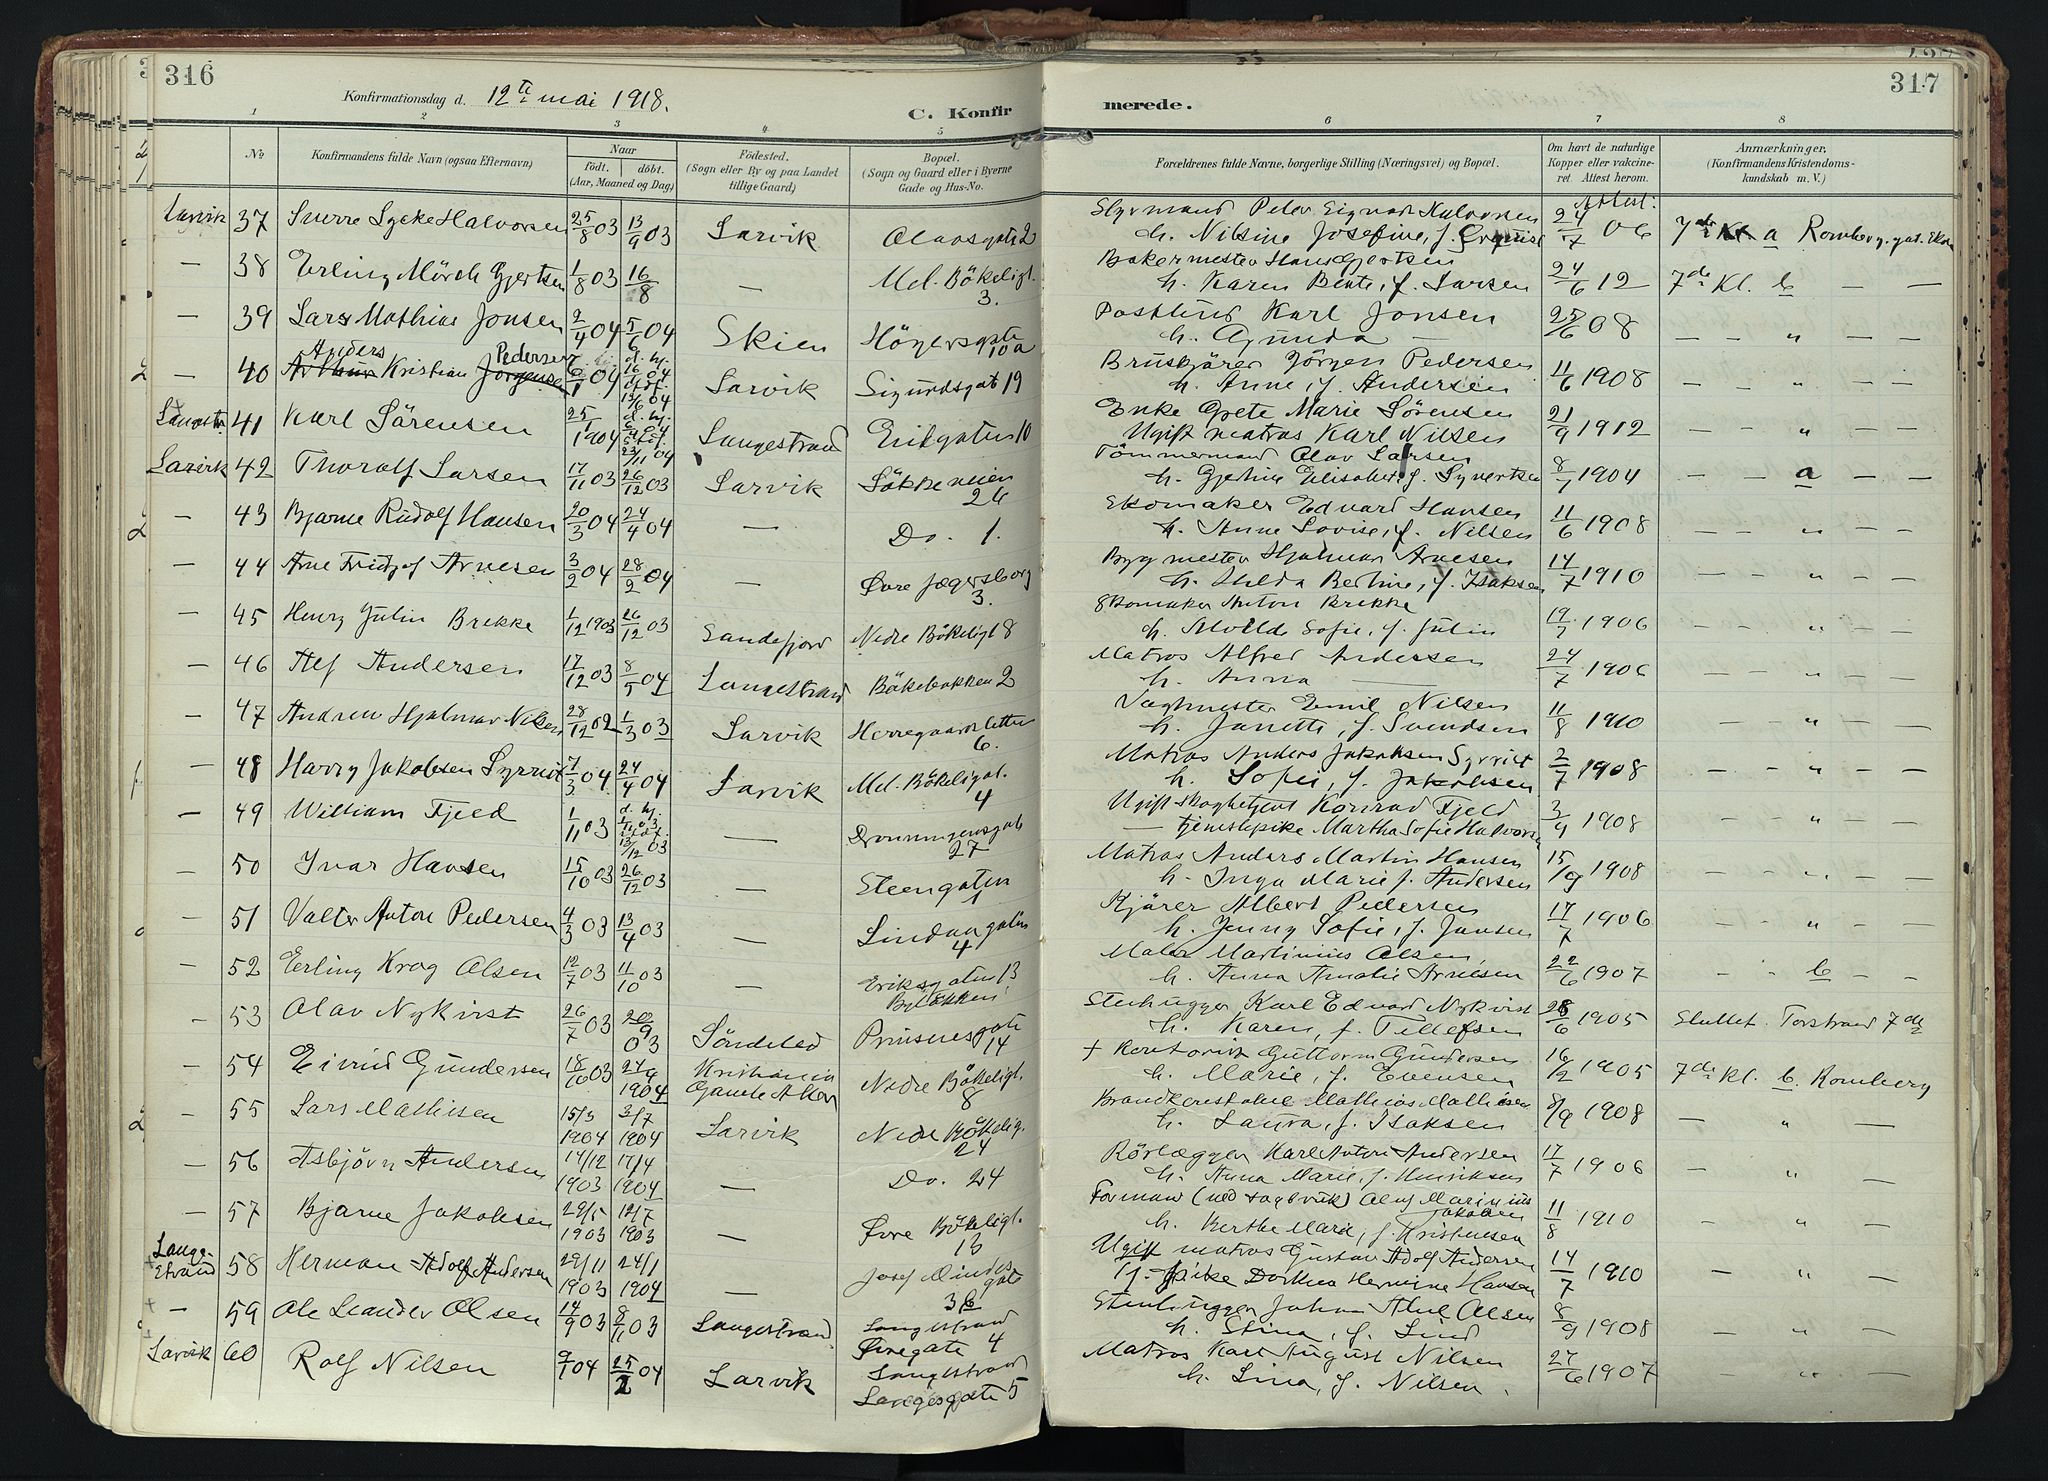 316
Konfirmationsdag d. 12te mai 1918.
C. Konfir
merede.
317
1 2 3 4 5 6 7 8
No
Konfirmandens fulde Navn (ogsaa Efternavn)
Naar
födt. döbt.
(Aar, Maaned og Dag)
Födested.
(Sogn eller By og paa Landet
tillige Gaard)
Bopæl.
(Sogn og Gaard eller i Byerne
Gade og Hus-No.
Forældrenes fulde Navne, borgerlige Stilling (Næringsvei) og Bopæl.
Om havt de naturlige
Kopper eller vakcine-
ret Attest herom.
Anmærkninger,
(Konfirmandens Kristendoms-
kundskab m. V.)
Attest:
Larvik 37 Sverre Lycke Halvorsen 25/8 03 13/9 03 Larvik Olavsgate 2 Styrmand Peter Sigvard Halvorsen 24/7 06 7de Kl. a Romberg. gat. Skole
h. Nilsine Josefine, f.
— 38 Erling Mörch Gjertsen 1/8 03 16/8 — Mel. Bökeligt. 3. Bakermester Hans Gjertsen 24/6 12 7de Kl. b — —
h. Karen Bente, f. Larsen
— 39 Lars Mathias Jonsen 2/4 04 5/6 04 Skien Höyersgate 10a Postbud Karl Jonsen 25/6 08 — — " —
h. Gunda —
— 40 Anders Arthur Kristian Pedersen Jörgensen 6/1 04 d. hj. 16/1 04 st. df. 12/6 04 Larvik Sigurdsgat 19 Bruskjörer Jörgen Pedersen 11/6 1908 — — " — —
h. Anne, f. Andersen
Langestr. 41 Karl Sörensen 25/1 1904 Langestrand Eriksgaten 10 Enke Grete Marie Sörensen 21/9 1912 — — " — —
Ugift matros Karl Nilsen
Larvik 42 Thoralf Larsen 17/11 03 26/12 03 Larvik Lökkeveien 26 Tömmermand Olav Larsen 8/7 1904 — — a — —
h. Gjertine Elisabet, f. Syvertsen
— 43 Bjarne Rudolf Hansen 20/3 04 24/4 04 — Do. 1. Skomaker Edvard Hansen 11/6 1908 — — " — —
h. Anne Lovise, f. Nilsen
— 44 Arne Fridtjof Arnesen 3/2 04 28/2 04 — Øvre Jægersborg 3. Bygmester Hjalmar Arnesen 14/7 1910 — — " — —
h. Hilda Bertine, f. Isaksen
— 45 Henry Julin Brekke 1/12 1903 26/12 03 Sandefjord Nedre Bökeligt 8 Skomaker Anton Brekke 19/7 1906 — — " — —
h. Alvilde Sofie, f. Julin
— 46 Alf Andersen 17/12 03 8/5 04 Langestrand Bökebakken 2 Matros Alfred Andersen 24/7 1906 — — " — —
h. Anna —
— 47 Andreas Hjalmar Nilsen 28/12 02 1/3 03 Larvik Herregaardsletten 6. Vagtmester Emil Nilsen 11/8 1910 — — " — —
h. Janette, f. Svendsen
— 48 Harry Jakobsen Syrrist 7/3 04 24/4 04 Larvik Mel. Bökeligat. 4 Matros Anders Jakobsen Syrrist 2/7 1908 — — " — —
h. Sofie, f. Jakobsen
— 49 William Fjeld 1/11 03 d. hj. 13/12 03 — Dronningensgate 27 Ugift skogbetjent Konrad Fjeld 3/9 1908 — — " — —
— tjenestepike Martha Sofie Halvorsen
— 50 Ivar Hansen 15/10 03 26/12 03 — Steengaten 1 Matros Anders Martin Hansen 15/9 1908 — — " — —
h. Inga Marie f. Andersen
— 51 Valter Anton Pedersen 4/3 03 13/4 03 — Lindangaten 4 Kjörer Albert Pedersen 17/7 1906 — — " — —
h. Jenny Sofie, f. Jansen
— 52 Erling Krog Olsen 12/7 03 11/10 03 — Eriksgaten 13 Byløkken Maler Martinius Olsen 22/6 1907 — — b — —
h. Anna Amalie Arnesen
— 53 Olav Nykvist 26/7 03 20/9 03 Söndeled Prinsensgate 14 Stenhugger Karl Edvard Nykvist 28/6 1905 Sluttet Torstrand 7de
h. Karen, f. Tellefsen
— 54 Eivind Gundersen 18/10 03 24/9 1904 Kristiania Gamle Aker Nedre Bökeligt. 8 + Kontorist Guttorm Gundersen 16/2 1905 7de Kl. b. Romberg
h. Marie, f. Evensen
— 55 Lars Mathisen 15/3 1904 3/7 1904 Larvik Nedre Bökelig. 24 Brandkonstabel Mathias Mathisen 8/9 1908 — " —
h. Laura, f. Isaksen
— 56 Asbjörn Andersen 14/12 1903 17/4 1904 — Do. 24 Rörlægger Karl Anton Andersen 17/7 1906 — " —
h. Anna Marie, f. Henriksen
— 57 Bjarne Jakobsen 29/5 1903 12/7 1903 — Øvre Bökeligt. 13 Formand (ved sagbruk) Oluf Marinius Jakobsen 11/8 1910 — " —
h. Berthe Marie, f. Kristensen
Lange-strand 58 Herman Adolf Andersen 29/11 1903 24/1 1904 — Josef Mindes gate 3b Ugift matros Gustav Adolf Andersen 14/7 1910 — " —
Tj. pike Dorthea Hermine Hansen
— 59 Ole Leander Olsen 14/9 03 8/11 03 Langestrand Langestrand Øvregate 4 Stenhugger Johan Abel Olsen 8/9 1908 — " —
h. Stina, f. Lind
Larvik 60 Rolf Nilsen 9/1 04 25/2 04 Larvik Langestrand Langesgate 5 Matros Karl August Nilsen 27/6 1907 — " —
h. Lina, f. Nilsen.